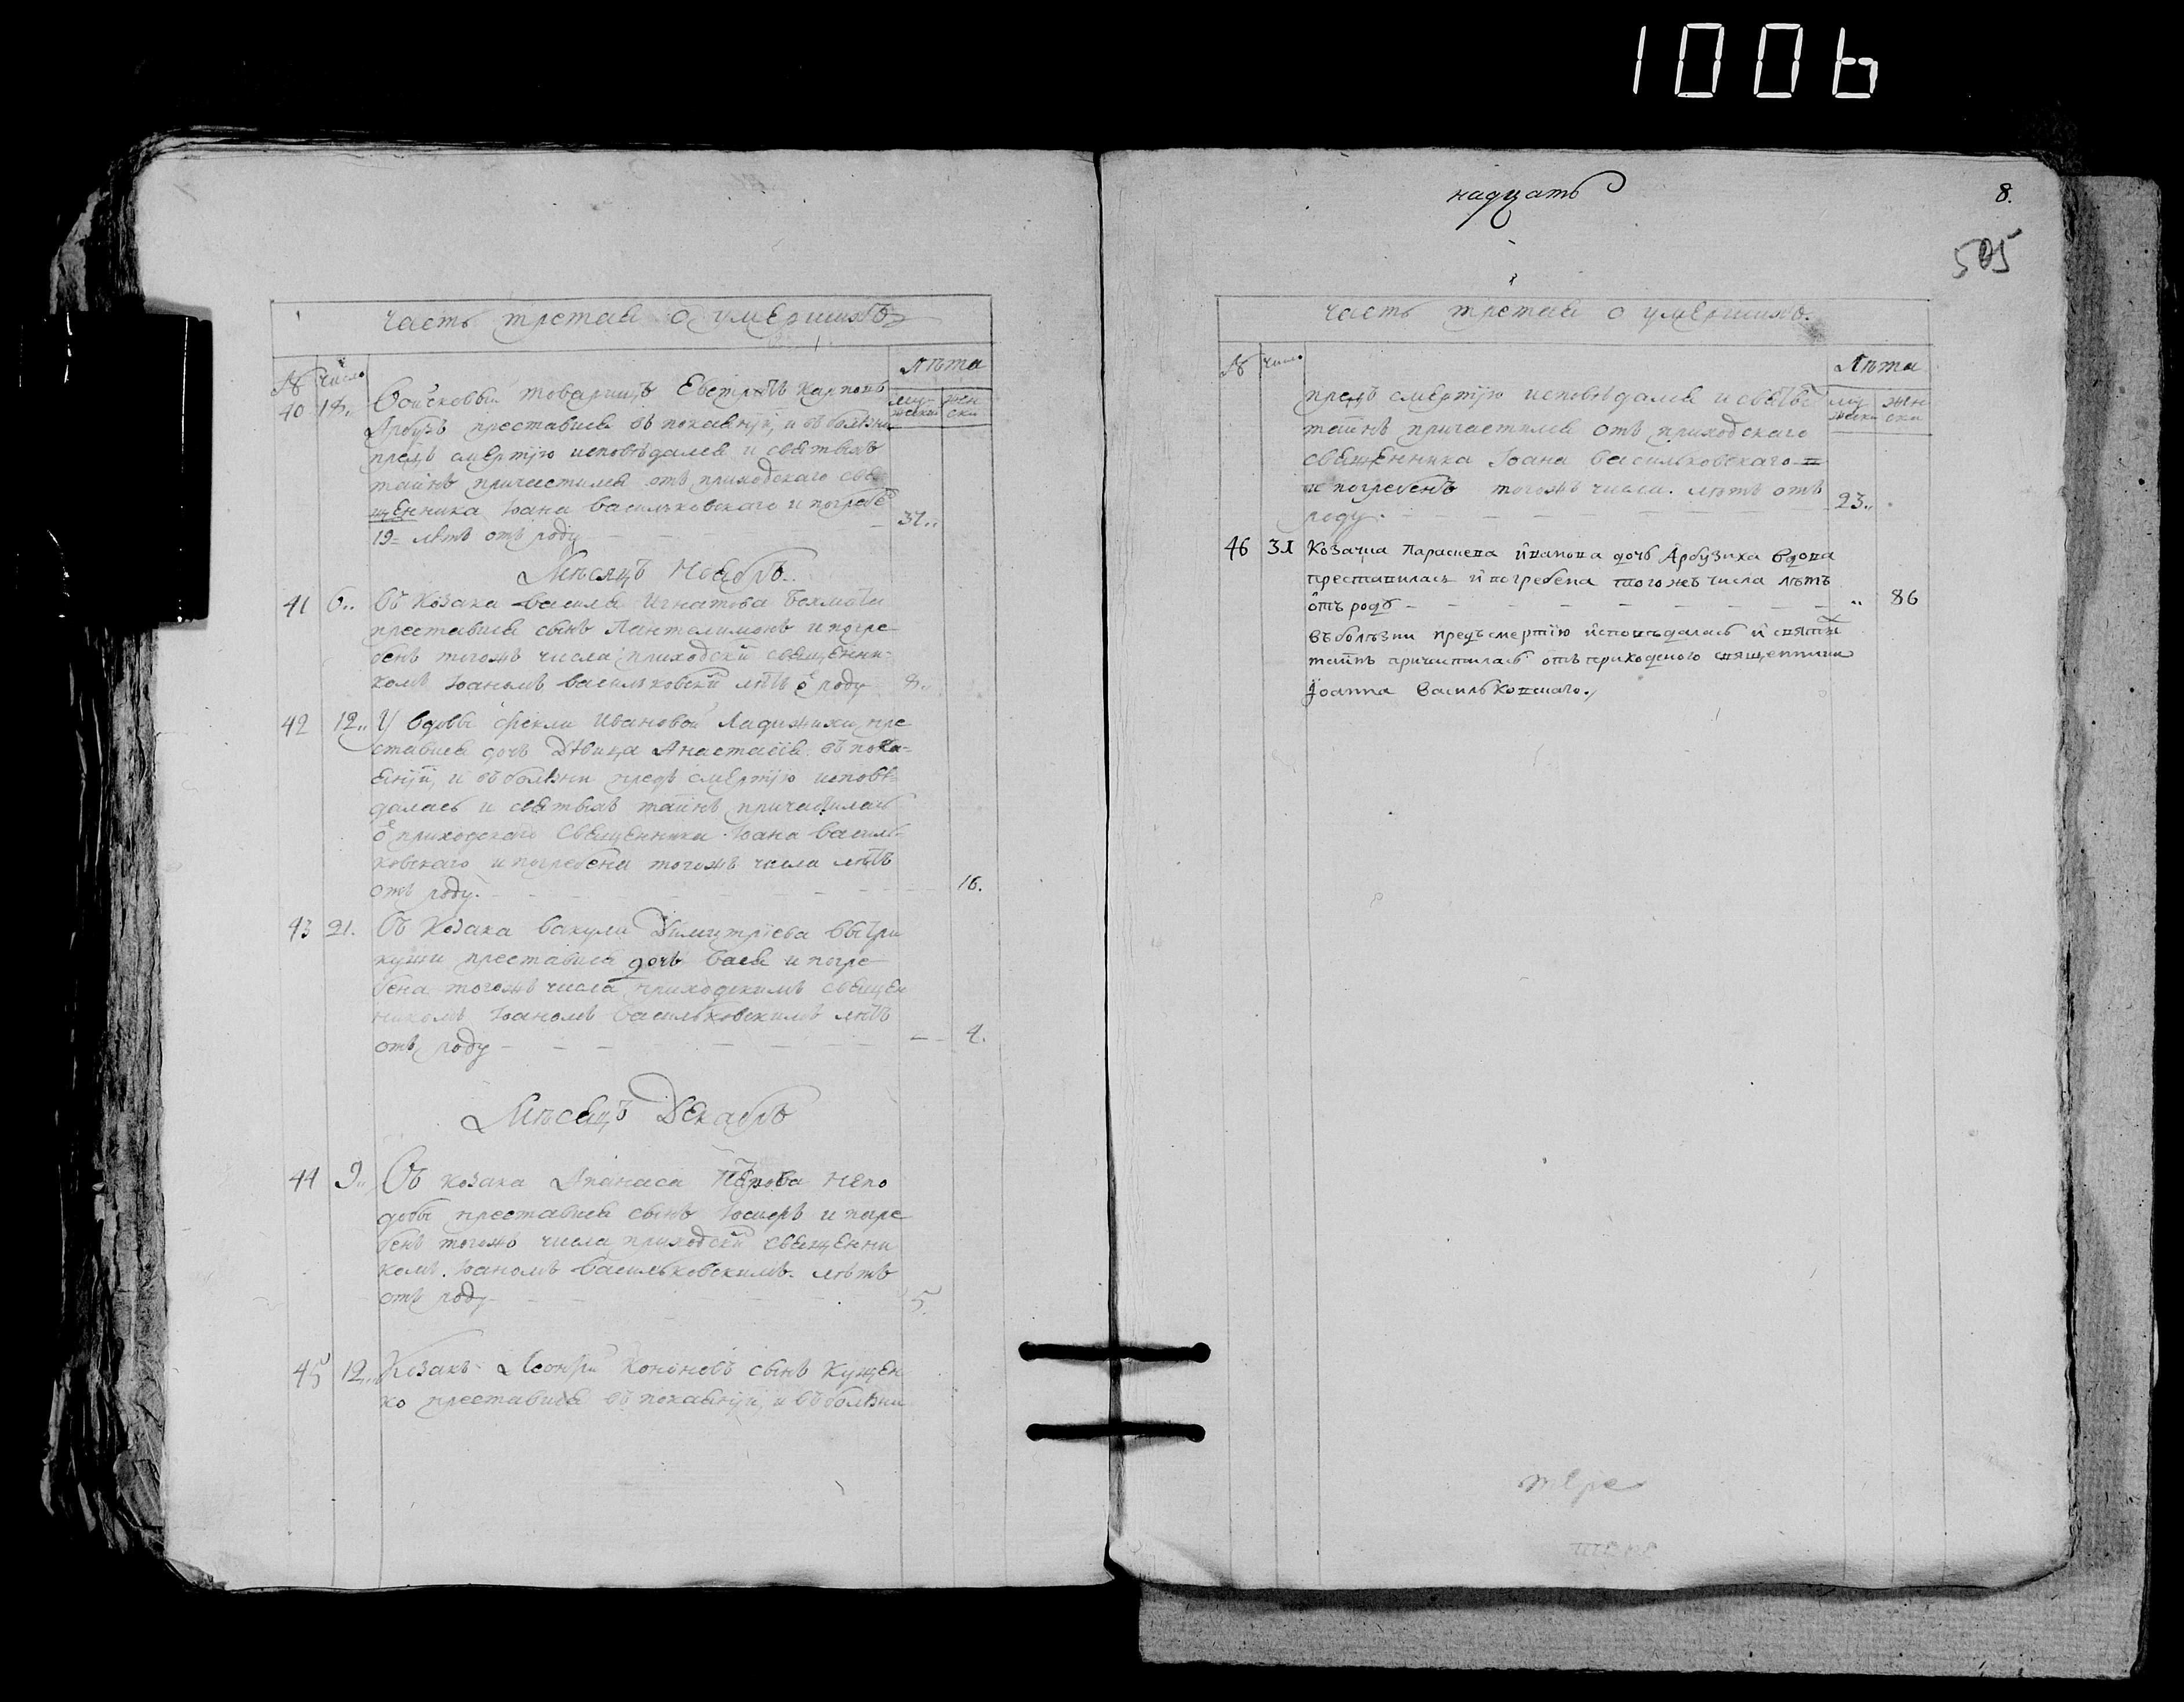 1006
часть третая о умершихъ
№ число лѣта
40 18.. Войсковый товарищъ Евстратъ Карповъ му- жен
Арбузъ преставися въ покаянїи, и въ болѣзни жески ски
предъ смертїю исповѣдался и святыхъ
таинъ причастился отъ приходскаго свя
щенника Іоана Васильковскаго и погребе
19= лѣтъ отъ роду 37..
Мѣсяцъ Ноябрь..
41 6.. Въ козака Василя Игнатова
преставися сынъ Пантелимонъ и погре-
бенъ тогожъ числа приходскй священни-
комъ Іоаномъ Васильковскй лѣтъ ѿ роду 8..
42 12.. У вдовы Феклы Ивановой Ладижихи пре
ставися дочь Дѣвица Анастасія въ пока-
янїи, и въ болѣзни предъ смертїю исповѣ-
далась и святыхъ таинъ причастилась
ѿ приходскаго священника Іоана Василь-
ковскаго и погребена тогожъ числа лѣтъ
отъ роду. 16.
43 21. Въ Козака Вакули Димитріева
преставися дочь Васса и погре-
бена тогожъ числа приходскимъ священ
никомъ Іоаномъ Васильковскимъ лѣтъ
отъ роду 4.
Мѣсяцъ Декабрь
44 9.. Въ козака Апанаса Непо
добы преставися сынъ Іосифъ и погре
бенъ тогожъ числа приходскй священни
комъ Іоаномъ Васильковскимъ лѣтъ
отъ роду 5.
45 12.. Козакъ Леонтій Кононовъ сынъ Кущен
ко преставися въ покаянїи, и въ болѣзни
надцать 8.
505
часть третая о умершихъ.
№ число Лѣта
предъ смертїю исповѣдался и святы му жен
таинъ причастился отъ приходскаго жески ски
священника Іоана Васильковскаго
и погребенъ тогожъ числа. лѣтъ отъ
роду. 23..
46 31 Козачка Параскева Иванова дочь Арбузиха вдова
преставилась и погребена тогожъ числа лѣтъ
отъ роду .. 86
въ болѣзни предъ смертїю исповѣдалась и святы
таинъ причастилась отъ приходского священника
Іоанна Васильковскаго.